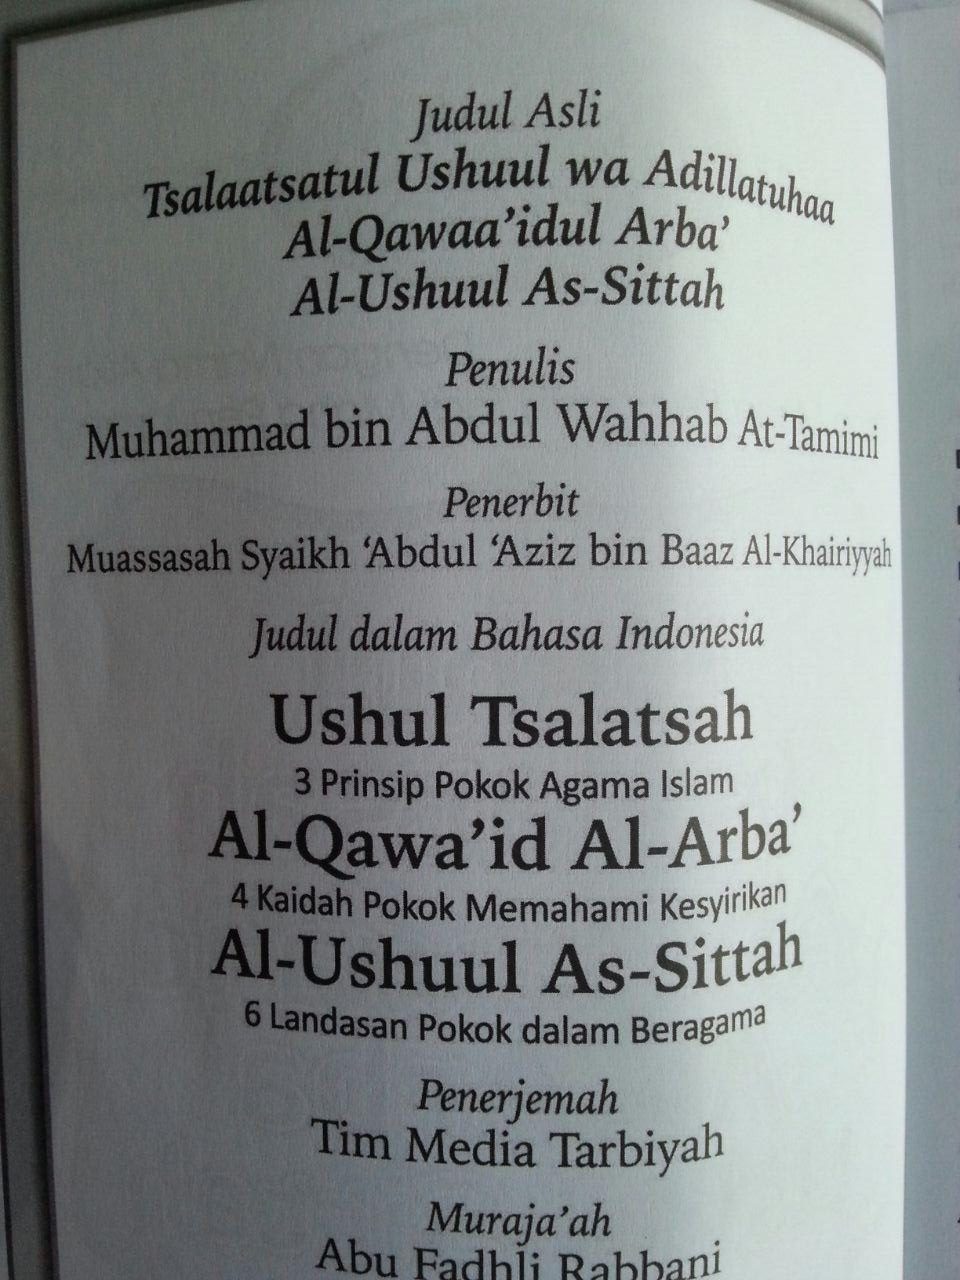 Judul Asli
Tsalaatsatul Ushuul wa Adillatuhaa
Al-Qawaa'idul Arba'
Al-Ushuul As-Sittah
Penulis
Muhammad bin Abdul Wahhab At-Tamimi
Penerbit
Muassasah Syaikh ‘Abdul ‘Aziz bin Baaz Al-Khairiyyah
Judul dalam Bahasa Indonesia
Ushul Tsalatsah
3 Prinsip Pokok Agama Islam
Al-Qawa'id Al-Arba'
4 Kaidah Pokok Memahami Kesyirikan
Al-Ushuul As-Sittah
6 Landasan Pokok dalam Beragama
Penerjemah
Tim Media Tarbiyah
Muraja'ah
Abu Fadhli Rabbani